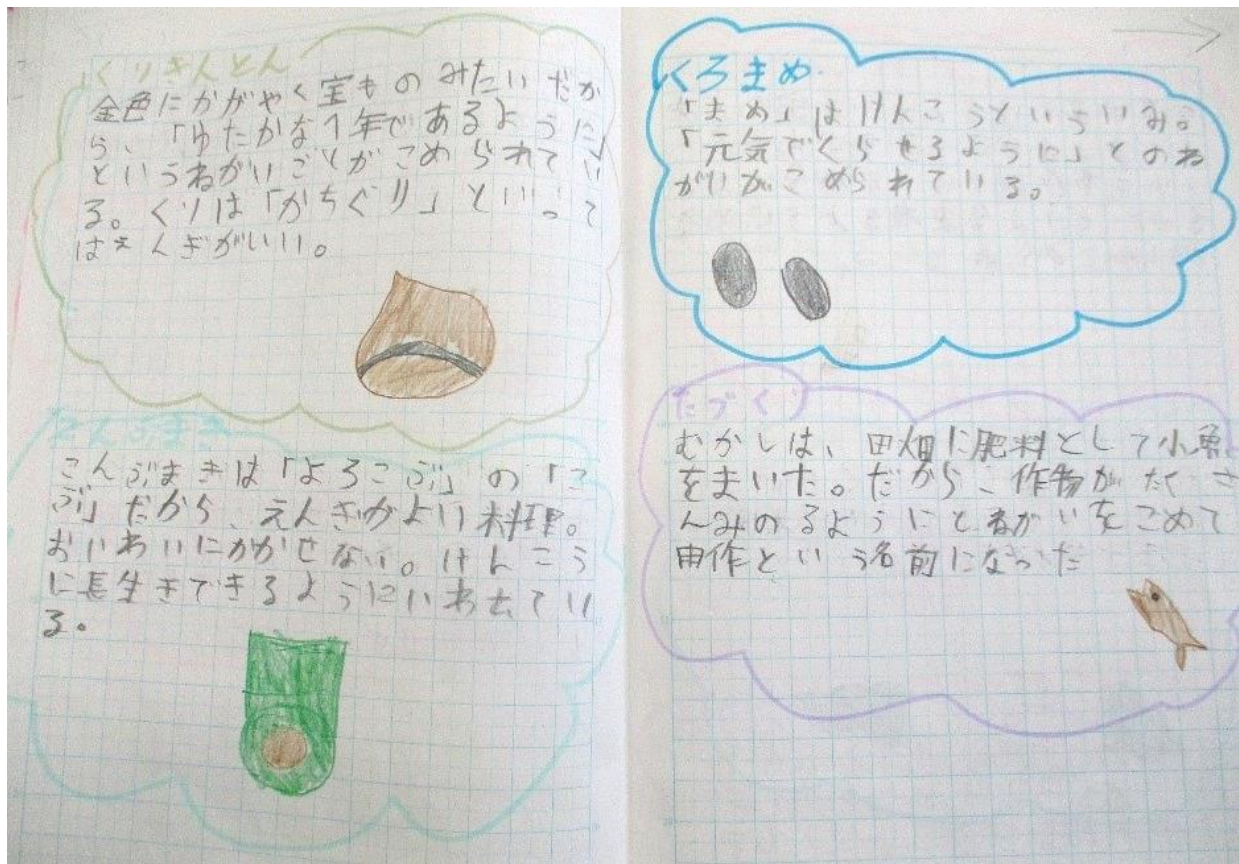 くりきんとん
金色にかがやく宝ものみたいだか
ら、「ゆたかな1年であるように」
というねがいごとがこめられてい
る。くりは「かちぐり」といって
はえんぎがいい。
こんぶまき
こんぶまきは「よろこぶ」の「こ
ぶ」だから、えんぎがよい料理。
おいわいにかかせない。けんこう
に長生きできるようにいわれてい
る。
くろまめ
「まめ」はけんこうといういみ。
「元気でくらせるように」とのね
がいがこめられている。
たづくり
むかしは、田畑に肥料として小魚
をまいた。だから、作物がたくさ
んみのるようにとねがいをこめて
田作という名前になった